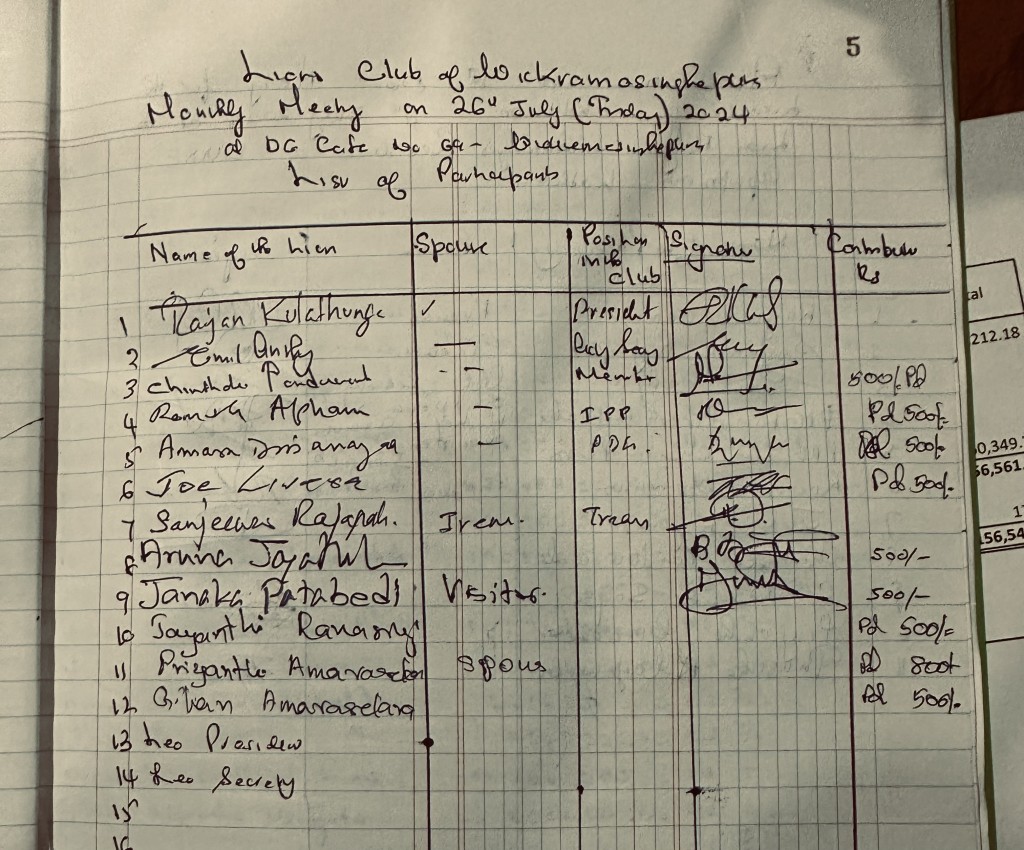 5
Lions Club of Wickramasinghepura
Monthly Meeting on 26th July (Friday) 2024
at DG Cafe
List of Participants
Name of the Lion Spouse Position in the Club Signature Contribution Rs
1 Rajan Kulathunga ✓ President
2 Emil —
3 Chinthdu - - Member 500/- Pd
4 Ramesh Alpham — IPP Pd 500/-
5 Amara Dissanayaka — PDG. Pd 500/-
6 Joe Livera Pd 500/-
7 Sanjeewa Rajapak. Irem. Treas
8 Aruna 500/-
9 Janaka Patabedi Visitor. 500/-
10 Jayanthi Ranasing Pd 500/-
11 Priyantha Amarasekara Spous Pd 800/-
12 Gihan Amarasekara Pd 500/-
13 Leo President
14 Leo Secrety
15
16
212.18